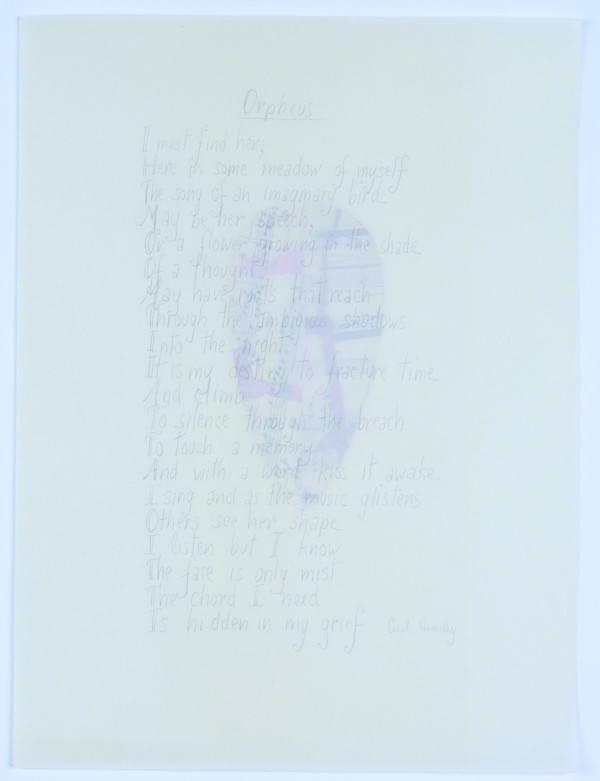 Orpheus
I must find her;
Here in some meadow of myself
The song of an imaginary bird
May be her speech,
Or a flower growing in the shade
Of a thought
May have roots that reach
Through the ambiguous shadows
Into the night
It is my destiny to fracture time
And climb
To silence through the breach
To touch a memory
And with a word kiss it awake
I sing and as the music glistens
Others see her shape
I listen but I know
The face is only mist
The chord I need
Is hidden in my grief Cecil Hemley